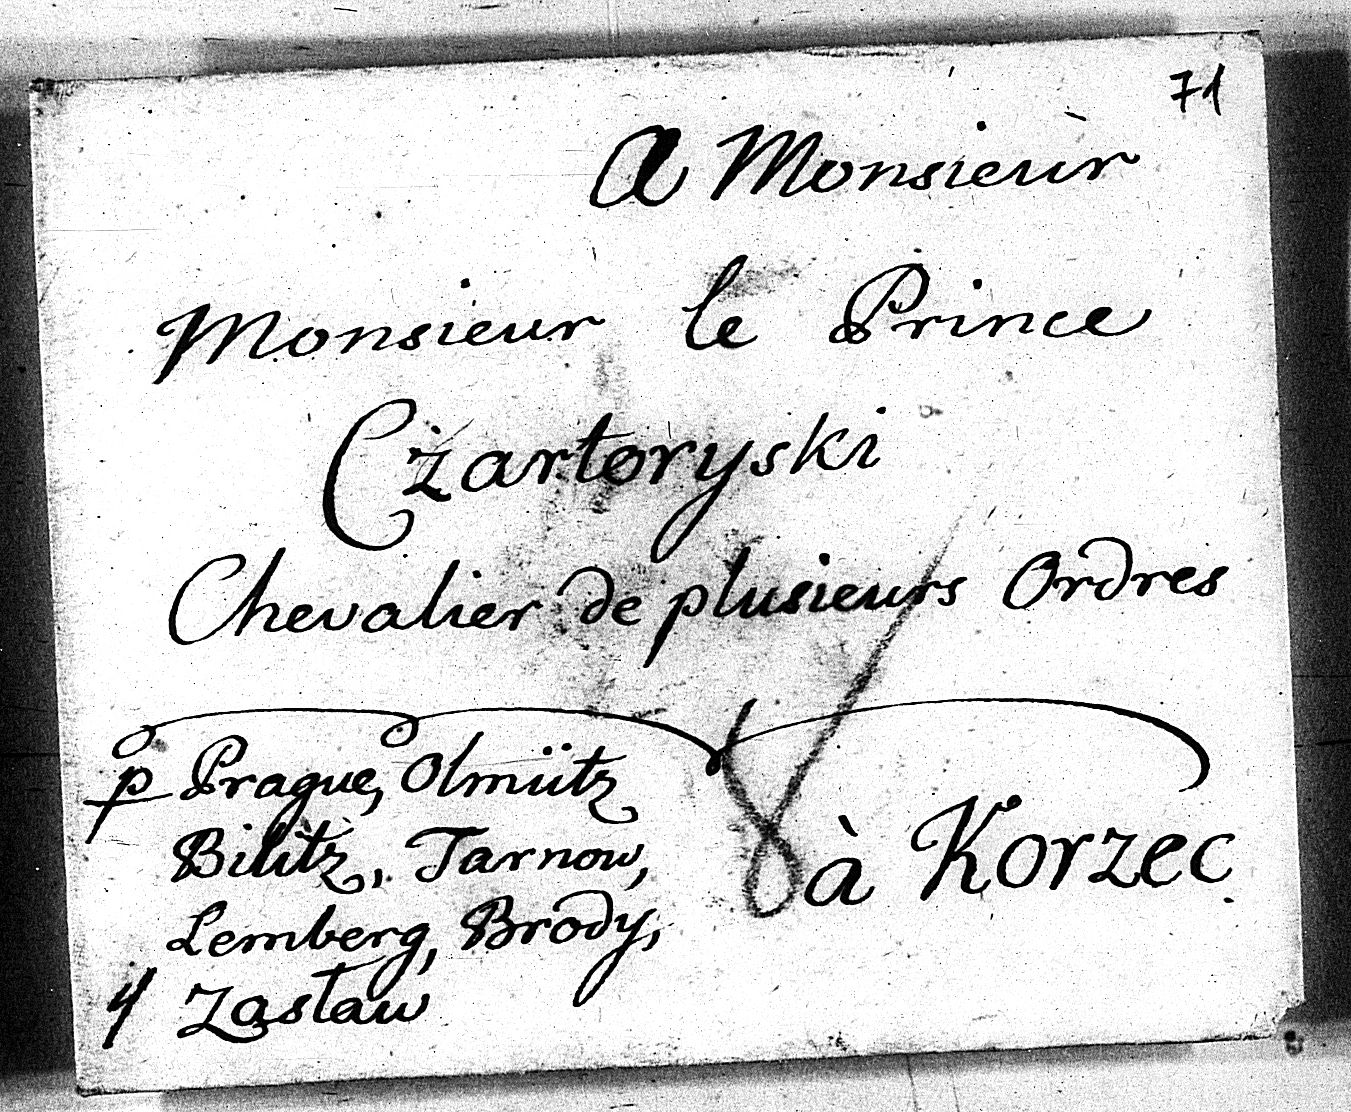 71
A Monsieur
Monsieur le Prince
Czartoryski
Chevalier de plusieurs Ordres
p Prague, Olmütz
Bilitz, Tarnow,
Lemberg, Brody,
Zaslaw
à Korzec